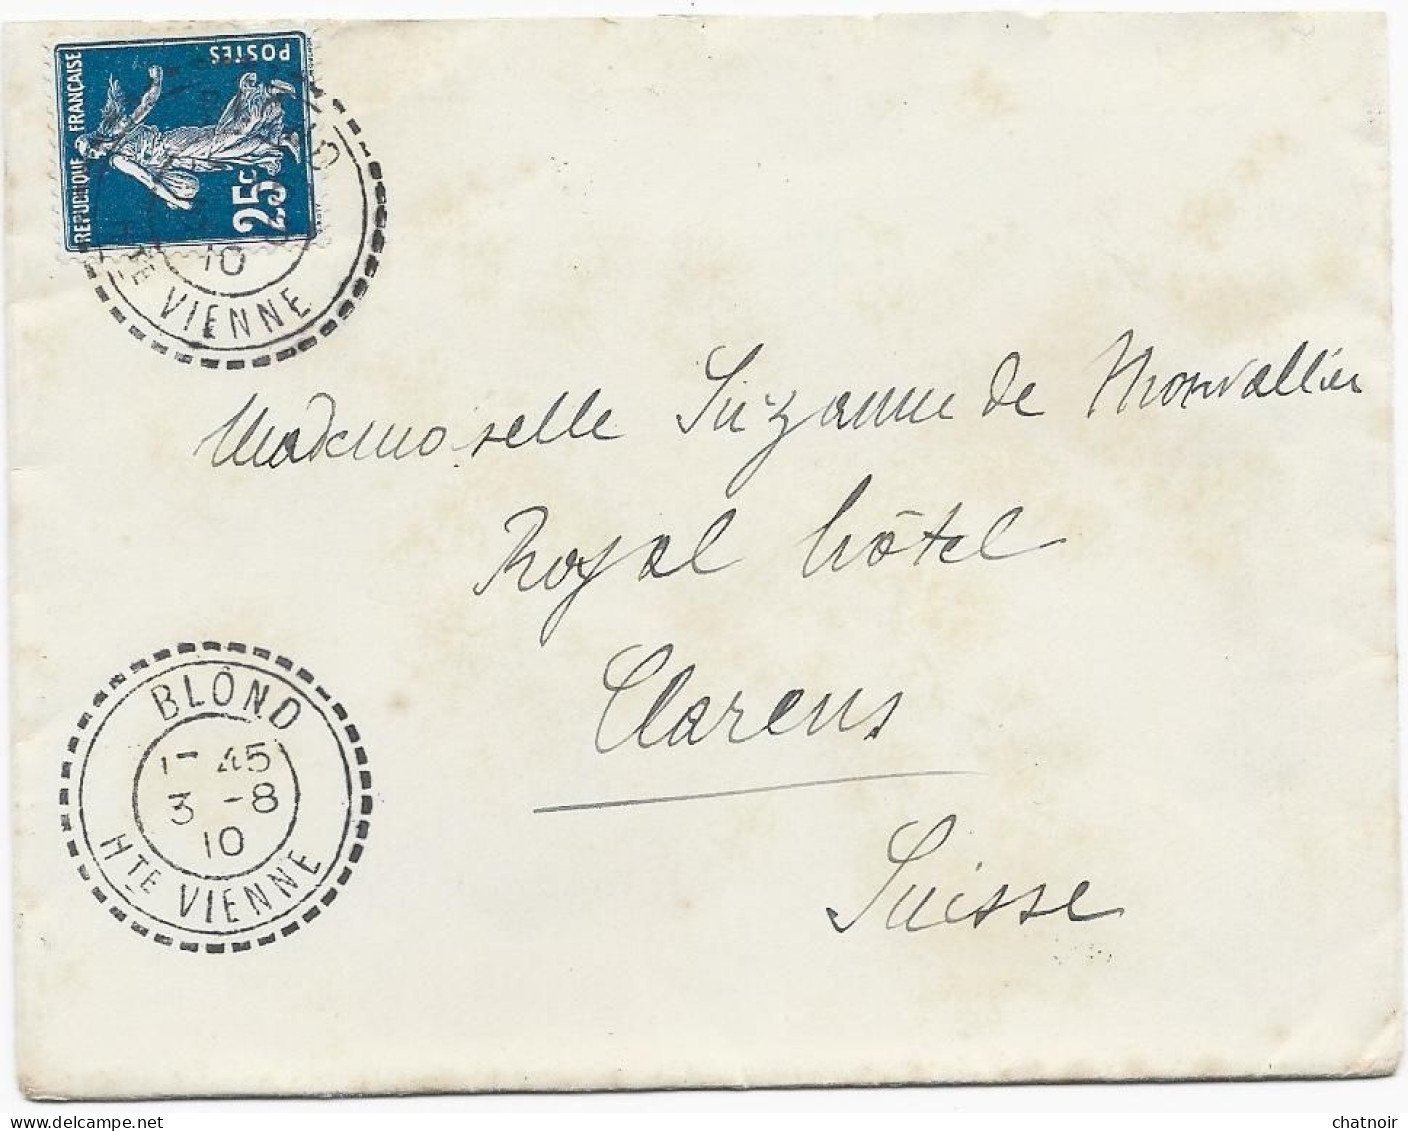 REPUBLIQUE FRANÇAISE
POSTES
25c
10
Hte VIENNE
Mademoiselle Suzanne de Monvallier
Royal hôtel
Clarens
Suisse
BLOND
1- 45
3 -8
10
Hte VIENNE
chatnoir